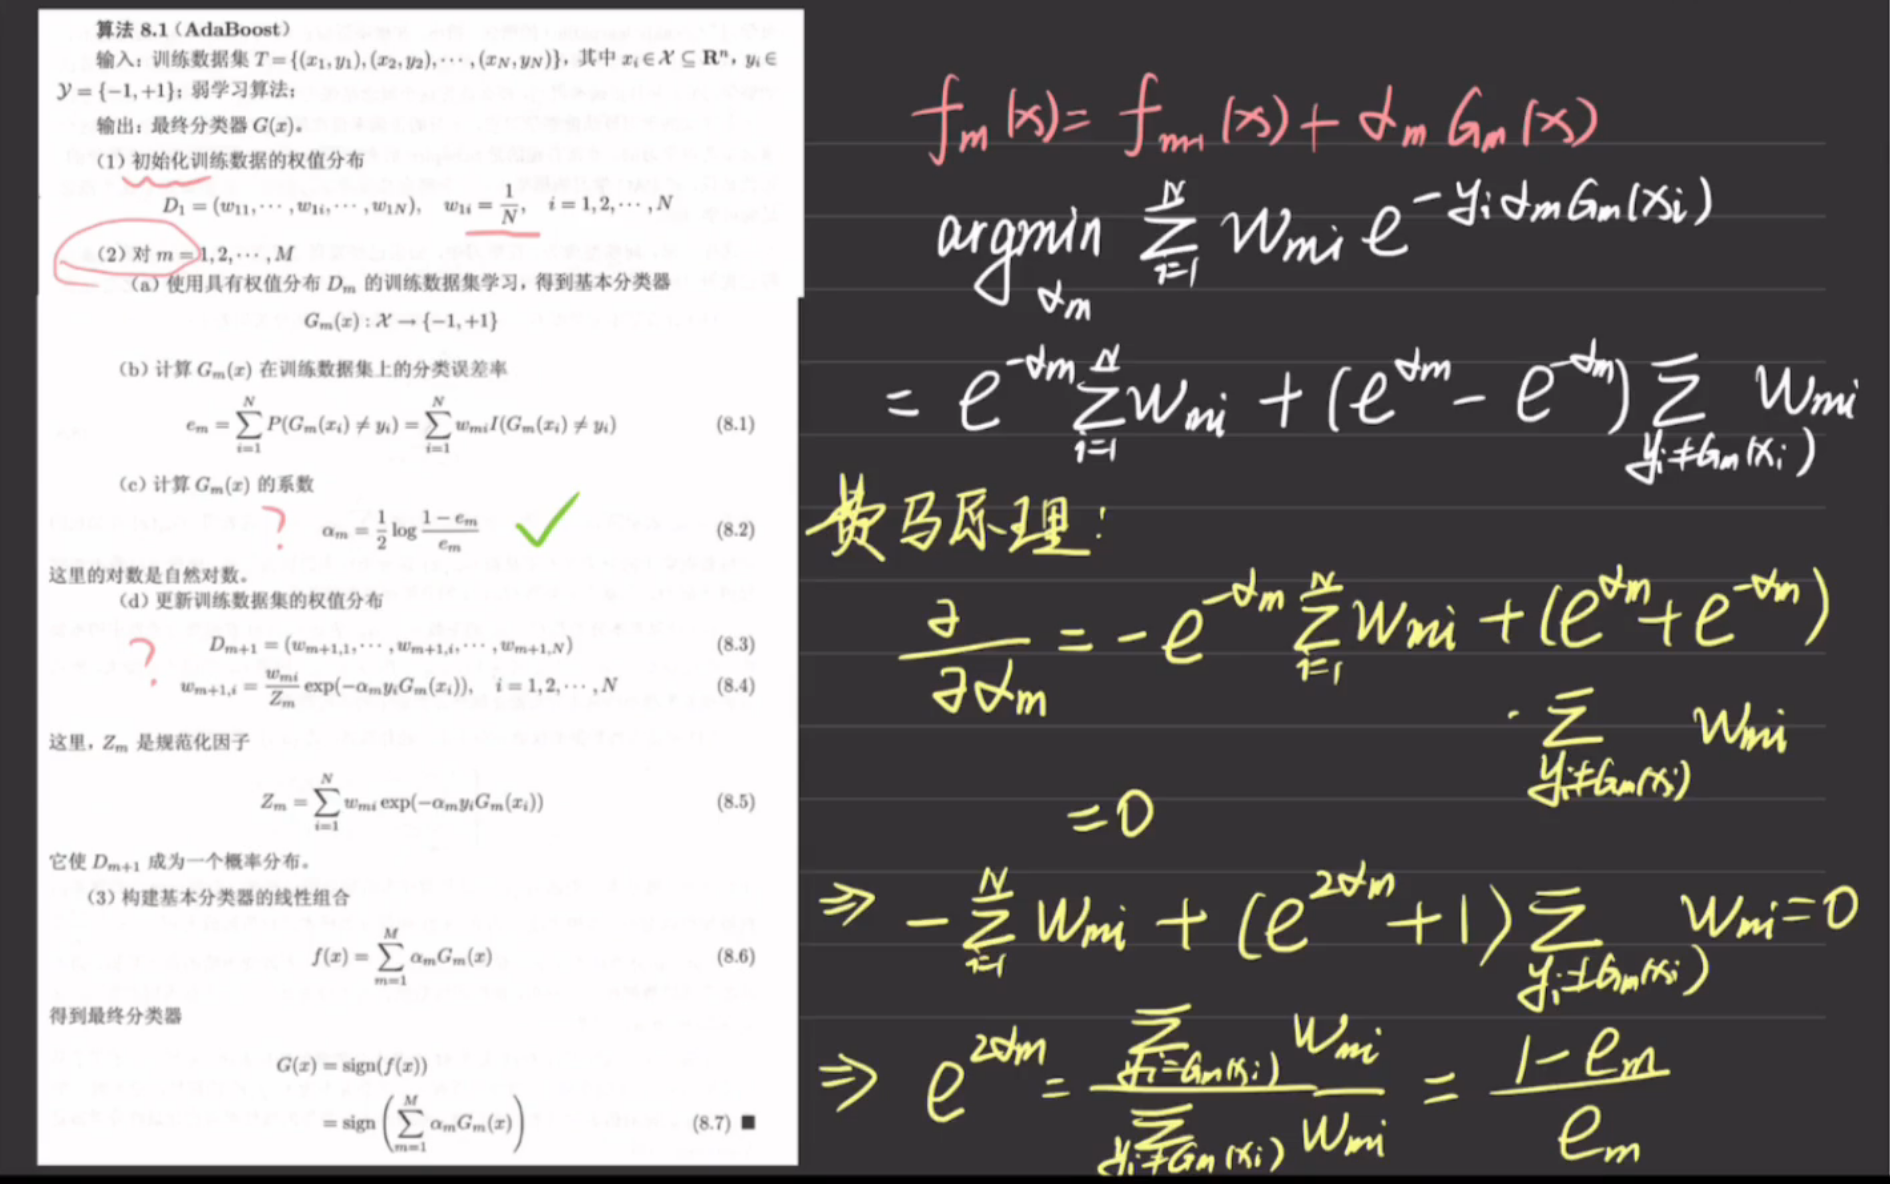 算法 8.1（AdaBoost）
输入：训练数据集 T = {(x₁, y₁), (x₂, y₂), ⋯, (x_N, y_N)}，其中 xᵢ ∈ 𝒳 ⊆ Rⁿ，yᵢ ∈
𝒴 = {−1, +1}；弱学习算法；
输出：最终分类器 G(x)。
（1）初始化训练数据的权值分布
D₁ = (w₁₁, ⋯, w₁ᵢ, ⋯, w₁N), w₁ᵢ = 1/N, i = 1, 2, ⋯, N
（2）对 m = 1, 2, ⋯, M
（a）使用具有权值分布 D_m 的训练数据集学习，得到基本分类器
G_m(x) : 𝒳 → {−1, +1}
（b）计算 G_m(x) 在训练数据集上的分类误差率
e_m = ∑_{i=1}^{N} P(G_m(xᵢ) ≠ yᵢ) = ∑_{i=1}^{N} w_{mi} I(G_m(xᵢ) ≠ yᵢ) (8.1)
（c）计算 G_m(x) 的系数
? α_m = 1/2 log (1 − e_m)/e_m (8.2)
这里的对数是自然对数。
（d）更新训练数据集的权值分布
? D_{m+1} = (w_{m+1,1}, ⋯, w_{m+1,i}, ⋯, w_{m+1,N}) (8.3)
w_{m+1,i} = w_{mi}/Z_m exp(−α_m yᵢ G_m(xᵢ)), i = 1, 2, ⋯, N (8.4)
这里，Z_m 是规范化因子
Z_m = ∑_{i=1}^{N} w_{mi} exp(−α_m yᵢ G_m(xᵢ)) (8.5)
它使 D_{m+1} 成为一个概率分布。
（3）构建基本分类器的线性组合
f(x) = ∑_{m=1}^{M} α_m G_m(x) (8.6)
得到最终分类器
G(x) = sign(f(x))
= sign(∑_{m=1}^{M} α_m G_m(x)) (8.7) ■
f_m(x) = f_{m-1}(x) + α_m G_m(x)
argmin_{α_m} ∑_{i=1}^{N} w_{mi} e^{−yᵢ α_m G_m(xᵢ)}
= e^{−α_m} ∑_{i=1}^{N} w_{mi} + (e^{α_m} − e^{−α_m}) ∑_{yᵢ≠G_m(xᵢ)} w_{mi}
费马原理：
∂/∂α_m = −e^{−α_m} ∑_{i=1}^{N} w_{mi} + (e^{α_m} + e^{−α_m})
· ∑_{yᵢ≠G_m(xᵢ)} w_{mi}
= 0
⇒ −∑_{i=1}^{N} w_{mi} + (e^{2α_m} + 1) ∑_{yᵢ≠G_m(xᵢ)} w_{mi} = 0
⇒ e^{2α_m} = ∑_{yᵢ=G_m(xᵢ)} w_{mi} / ∑_{yᵢ≠G_m(xᵢ)} w_{mi} = (1 − e_m)/e_m